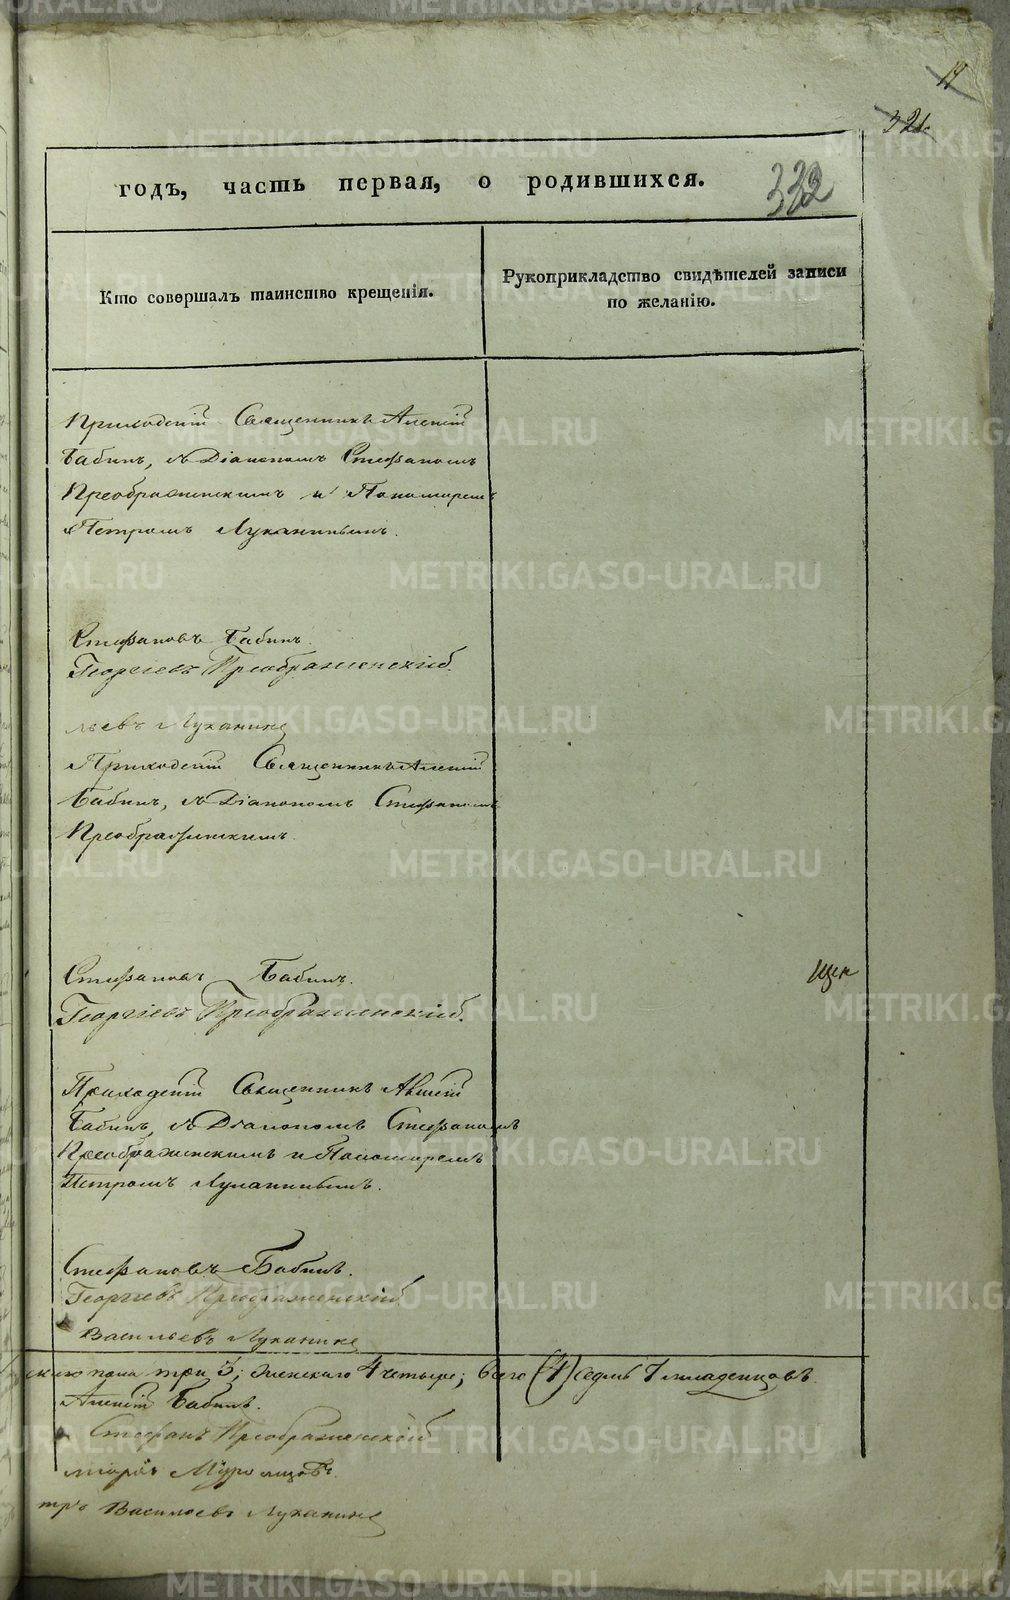 19
321.
годъ, часть первая, о родившихся.
332
Кто совершалъ таинство крещенія.
Рукоприкладство свидѣтелей записи
по желанію.
Приходскій Священникъ Алексій
Бабинъ, съ Діакономъ Стефаномъ
Преображенскимъ и Пономаремъ
Петромъ Луканинымъ.
Стефановъ Бабинъ.
Георгіевъ Преображенскій.
льевъ Луканинъ
Приходскій Священникъ Алексій
Бабинъ, съ Діакономъ Стефаномъ
Преображенскимъ.
Стефановъ Бабинъ.
Георгіевъ Преображенскій.
Приходскій Священникъ Алексій
Бабинъ, съ Діакономъ Стефаномъ
Преображенскимъ и Пономаремъ
Петромъ Луканинымъ.
Стефановъ Бабинъ.
Георгіевъ Преображенскій
Васильевъ Луканинъ
пола три 3; женскаго 4 четыре; всего (7) седмь 7 младенцовъ.
Алексій Бабинъ.
Стефанъ Преображенскій
тръ Васильевъ Луканинъ
METRIKI.GASO-URAL.RU